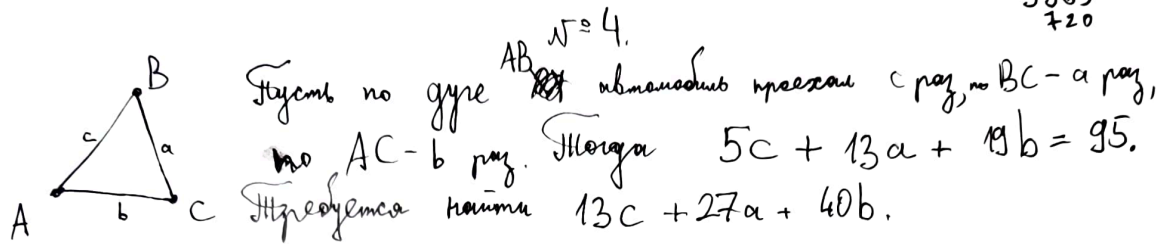 720
№ 4.
B
Пусть по дуге AB автомобиль проехал c раз, по BC - a раз,
c
a
по AC - b раз. Тогда 5c + 13a + 19b = 95.
A
b
C
Требуется найти 13c + 27a + 40b.